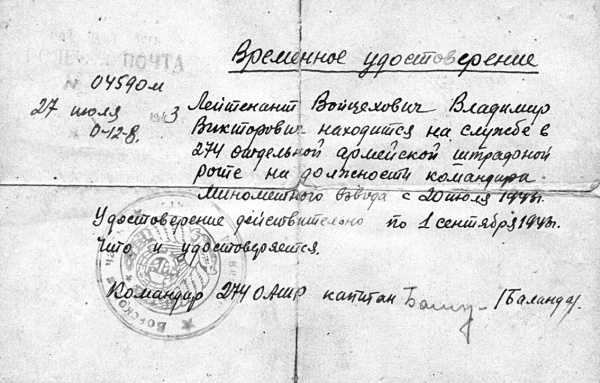 ПОЛЕВАЯ ПОЧТА
№ 04590м
27 июля 1943
0-12-8.
Временное удостоверение
Лейтенант Войцехович Владимир
Викторович находится на службе в
274 отдельной армейской штрафной
роте на должности командира
Миномётного взвода с 20 июля 1943г.
Удостоверение действительно по 1 сентября 1943г.
Что и удостоверяется.
Командир 274 ОАШР капитан /Баланда/.